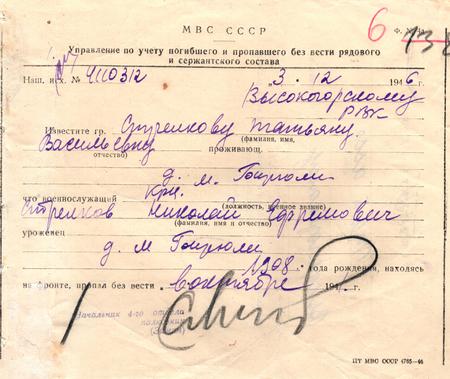 МВС СССР
6
Управление по учету погибшего и пропавшего без вести рядового
и сержантского состава
Наш. исх. № 4110312
3. 12 1946 г.
Высокогорскому
РВК
Известите гр. Стрелкову Татьяну
(фамилия, имя,
Васильевну
отчество) проживающ.
что военнослужащий кр-ц.
(должность, военное звание)
Стрелков Николай Ефремович
(фамилия, имя и отчество)
уроженец
1908 года рождения, находясь
на фронте, пропал без вести в октябре 194 г.
Начальник 4-го отдела
ПТ МВС СССР 4765—46